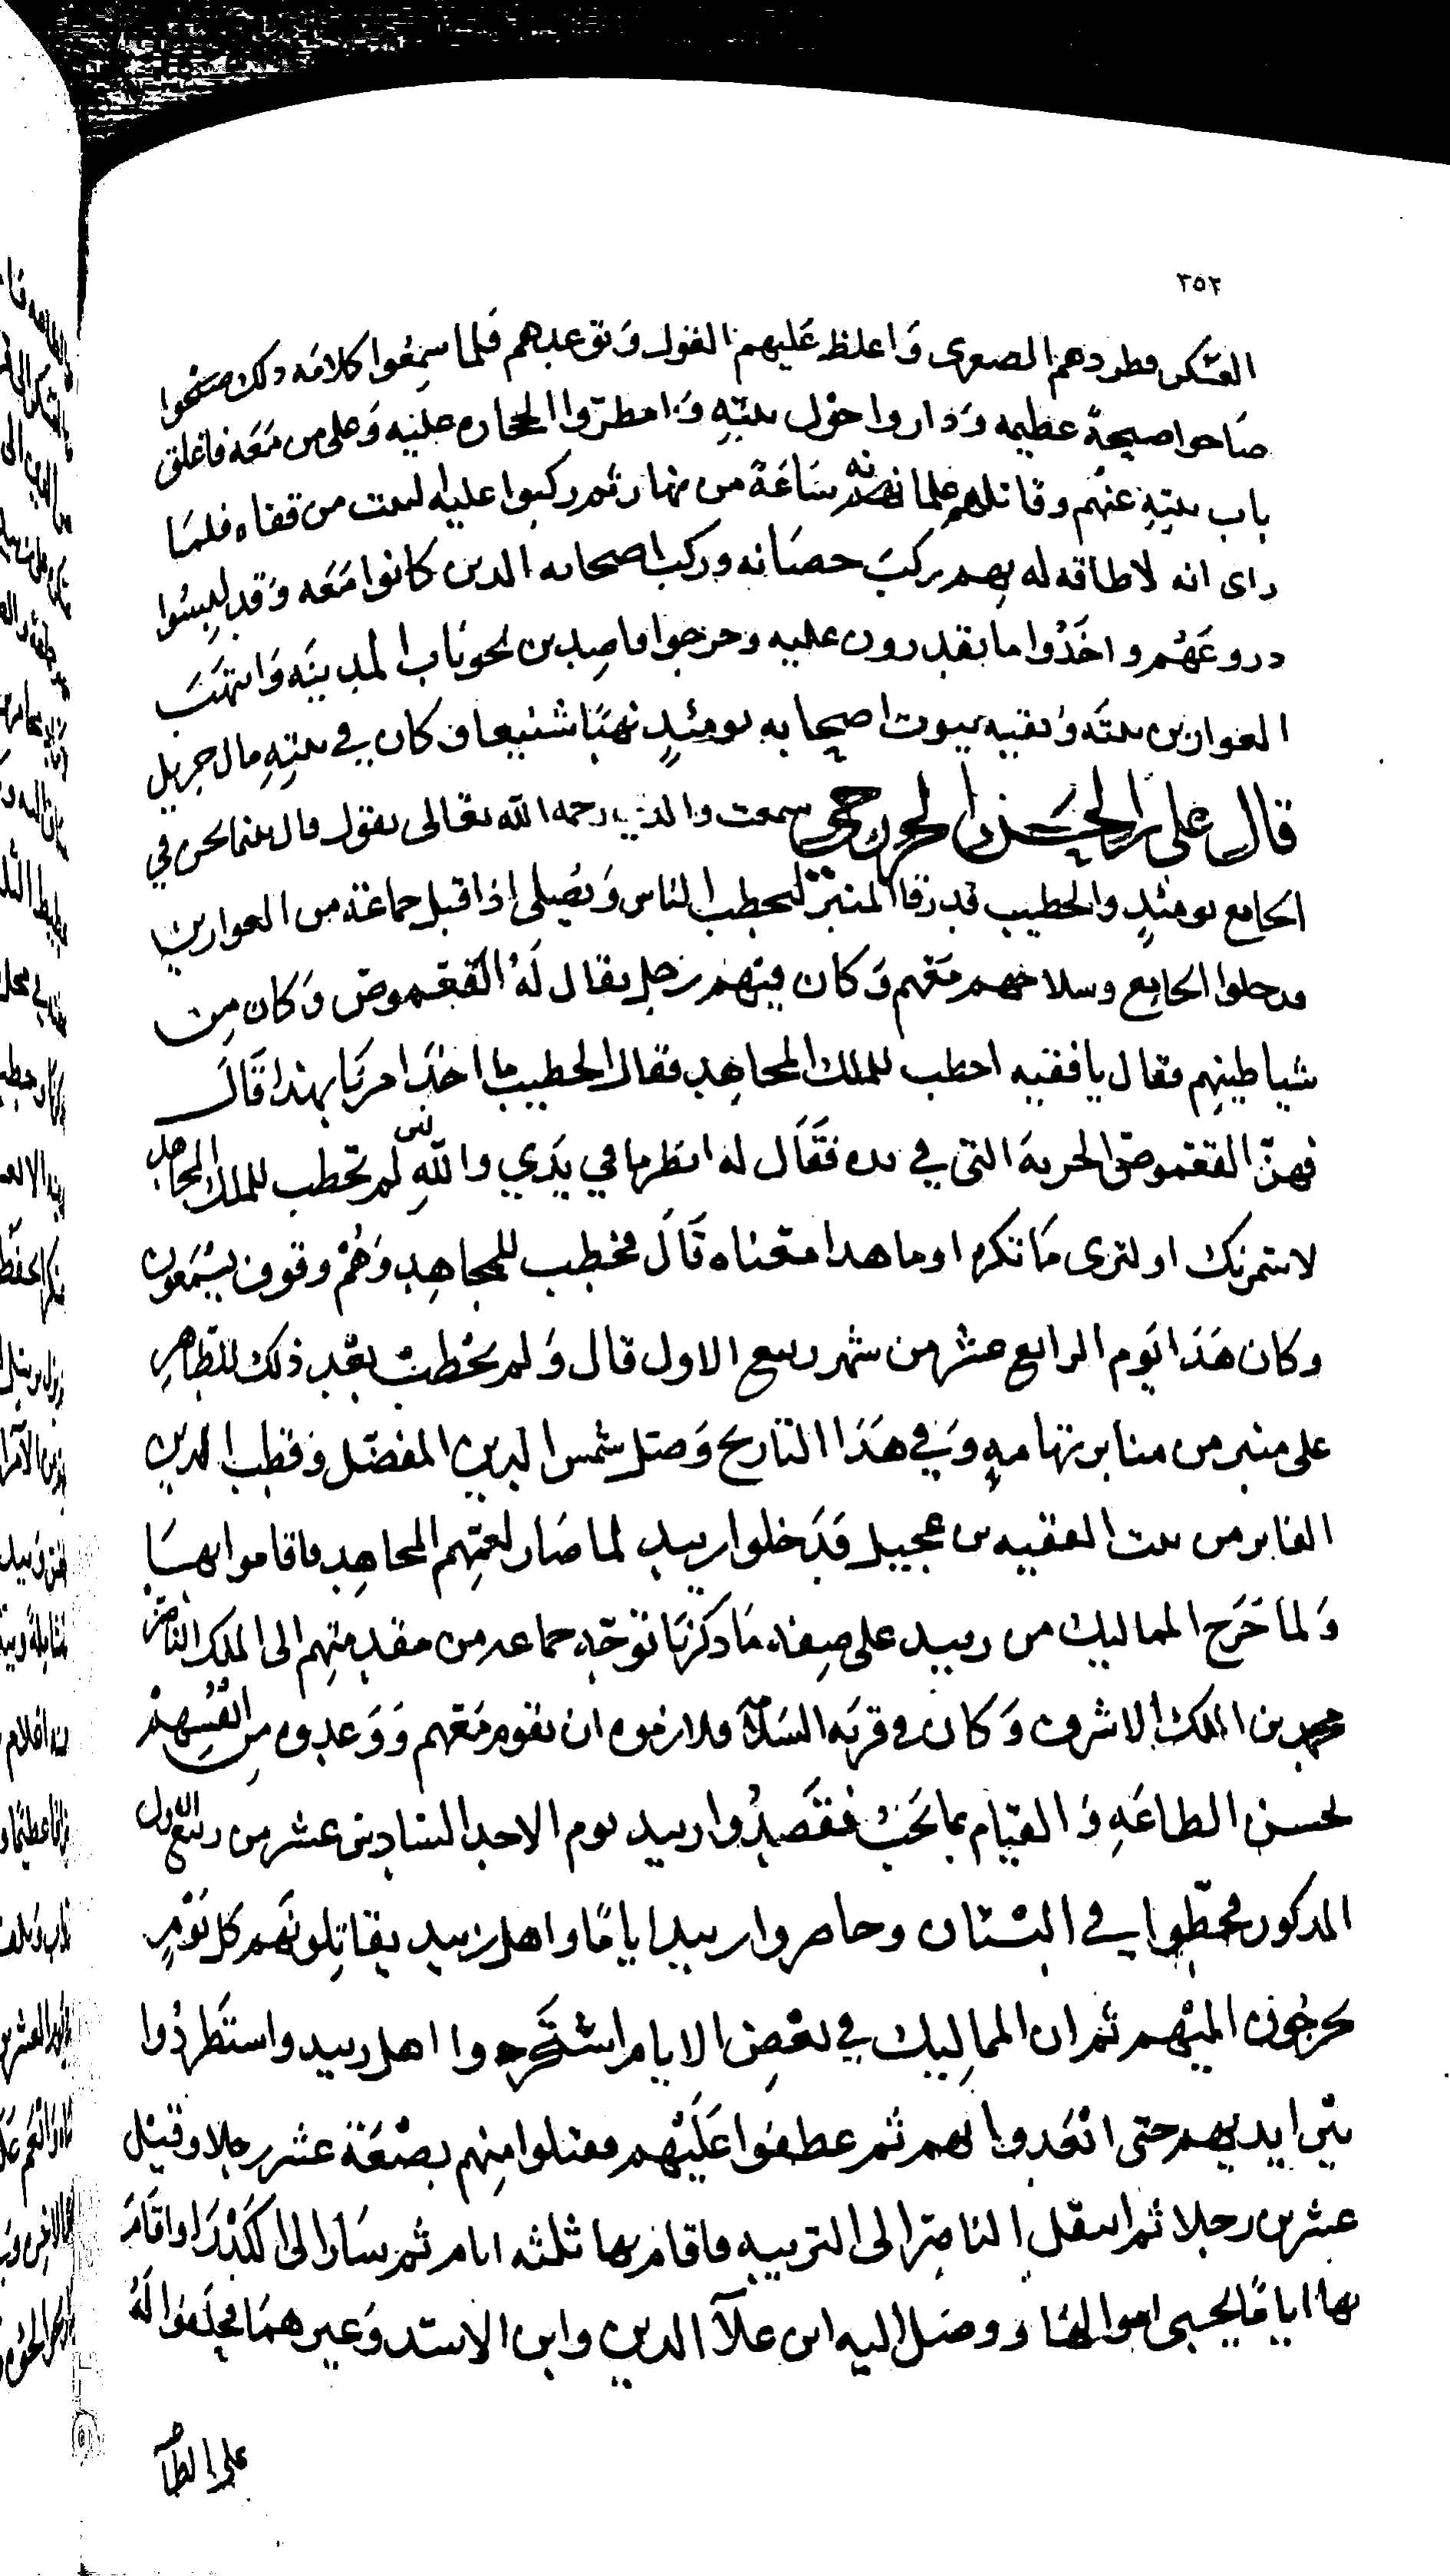 ٣٥٢
العسكر فطردهم الصعرى واغلظ عليهم القول وتوعدهم فلما سمعوا كلامه ذلك
صاحوا صيحة عظيمه وداروا حول بيته وامطروا الحجاره عليه وعلى من معه فاغلق
باب بيته عنهم وقاتلهم غلمانه ساعة من نهار ثم ركبوا عليه البيت من قفاه فلما
راى انه لا طاقه له بهم ركب حصانه وركب اصحابه الذين كانوا معه وقد لبسوا
دروعهم واخذوا ما يقدرون عليه وخرجوا قاصدين نحو باب المدينه وانتهبت
العوارين بيته وبقيه بيوت اصحابه يومئذ نهبا شنيعا وكان في بيته مال جزيل
قال علي بن الحسن الخزرجي سمعت والدي رحمه الله تعالى يقول قال بينما نحن في
الجامع يومئذ والخطيب قد رقا المنبر ليخطب الناس ويصلي اذ اقبل جماعة من العوارين
فدخلوا الجامع وسلاحهم معهم وكان فيهم رجل يقال له القعموص وكان من
شياطينهم فقال يا فقيه اخطب للملك المجاهد فقال الخطيب ما احد امرنا بهذا قال
فهز القعموص الحربه التي في يده فقال له انظر ما في يدي والله لئن لم تخطب للملك المجاهد
او لترى ما تكره او ما هذا معناه قال فخطب للمجاهد وهم وقوف يسمعون
وكان هذا يوم الرابع عشر من شهر ربيع الاول قال ولم يخطب بعد ذلك للظاهر
على منبر من منابر تهامه وفي هذا التاريخ وصل شمس الدين المفضل وقطب الدين
الفابر من بيت الفقيه بن عجيل فدخلوا زبيد لما صار لعمهم المجاهد فاقاموا بها
ولما خرج المماليك من زبيد على صفه ما ذكرنا توجه جماعه من مقدمتهم الى الملك الناصر
محمد بن الملك الاشرف وكان في قريه السلامة فلازموه ان يقوم معهم ووعدوه من انفسهم
لحسن الطاعه والقيام بما يحب فقصدوا زبيد يوم الاحد السادس عشر من ربيع الاول
المذكور فحطوا في البستان وحاصروا زبيد اياما واهل زبيد يقاتلونهم كل يوم
يخرجون اليهم ثم ان المماليك في بعض الايام استجروا اهل زبيد واستطردوا
بين ايديهم حتى ابعدوا بهم ثم عطفوا عليهم فقتلوا منهم بضعة عشر رجلا وقيل
عشرين رجلا ثم انتقل الناصر الى التربيه فاقام بها ثلثه ايام ثم سار الى الكدرا واقام
بها اياما يجبى اموالها ووصل اليه ابن علا الدين وابن الاسد وغيرهما فحلفوا له
على الطا